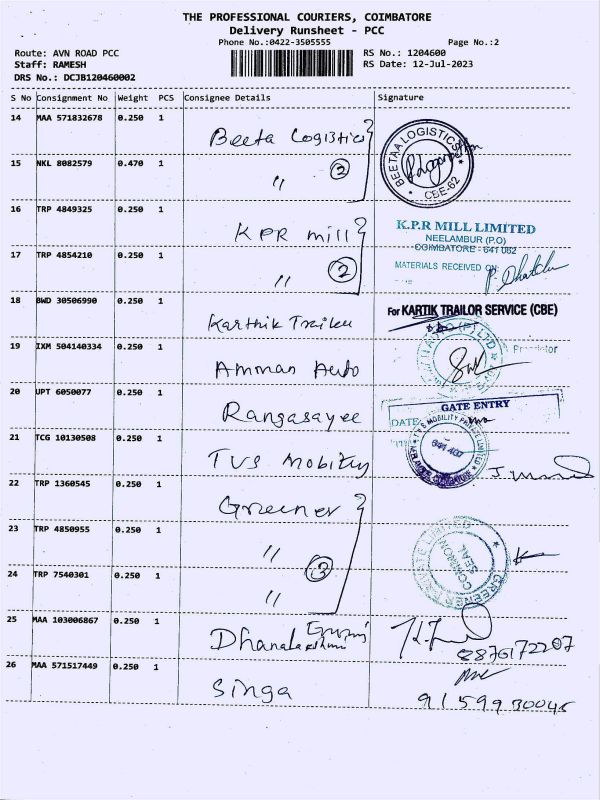 THE PROFESSIONAL COURIERS, COIMBATORE
Delivery Runsheet - PCC
Phone No.:0422-3505555 Page No.:2
Route: AVN ROAD PCC RS No.: 1204600
Staff: RAMESH RS Date: 12-Jul-2023
DRS No.: DCJB120460002
S No Consignment No Weight PCS Consignee Details Signature
14 MAA 571832678 0.250 1 Beeta Logistics
BEETAA LOGISTICS
CBE-62
15 NKL 8082579 0.470 1 " 2
16 TRP 4849325 0.250 1 KPR mill
K.P.R MILL LIMITED
NEELAMBUR (P.O)
COIMBATORE - 641 062
17 TRP 4854210 0.250 1 " 2
MATERIALS RECEIVED ON:
18 BWD 30506990 0.250 1 Karthik Trailer
For KARTIK TRAILOR SERVICE (CBE)
19 IXM 504140334 0.250 1 Amman Auto
20 UPT 6050077 0.250 1 Rangasayee
GATE ENTRY
DATE
21 TCG 10130508 0.250 1 TVS Mobility
22 TRP 1360545 0.250 1 Greener
23 TRP 4850955 0.250 1 "
COMMON
SEAL
24 TRP 7540301 0.250 1 " 3
25 MAA 103006867 0.250 1 Dhanalakshmi
26 MAA 571517449 0.250 1 Singa